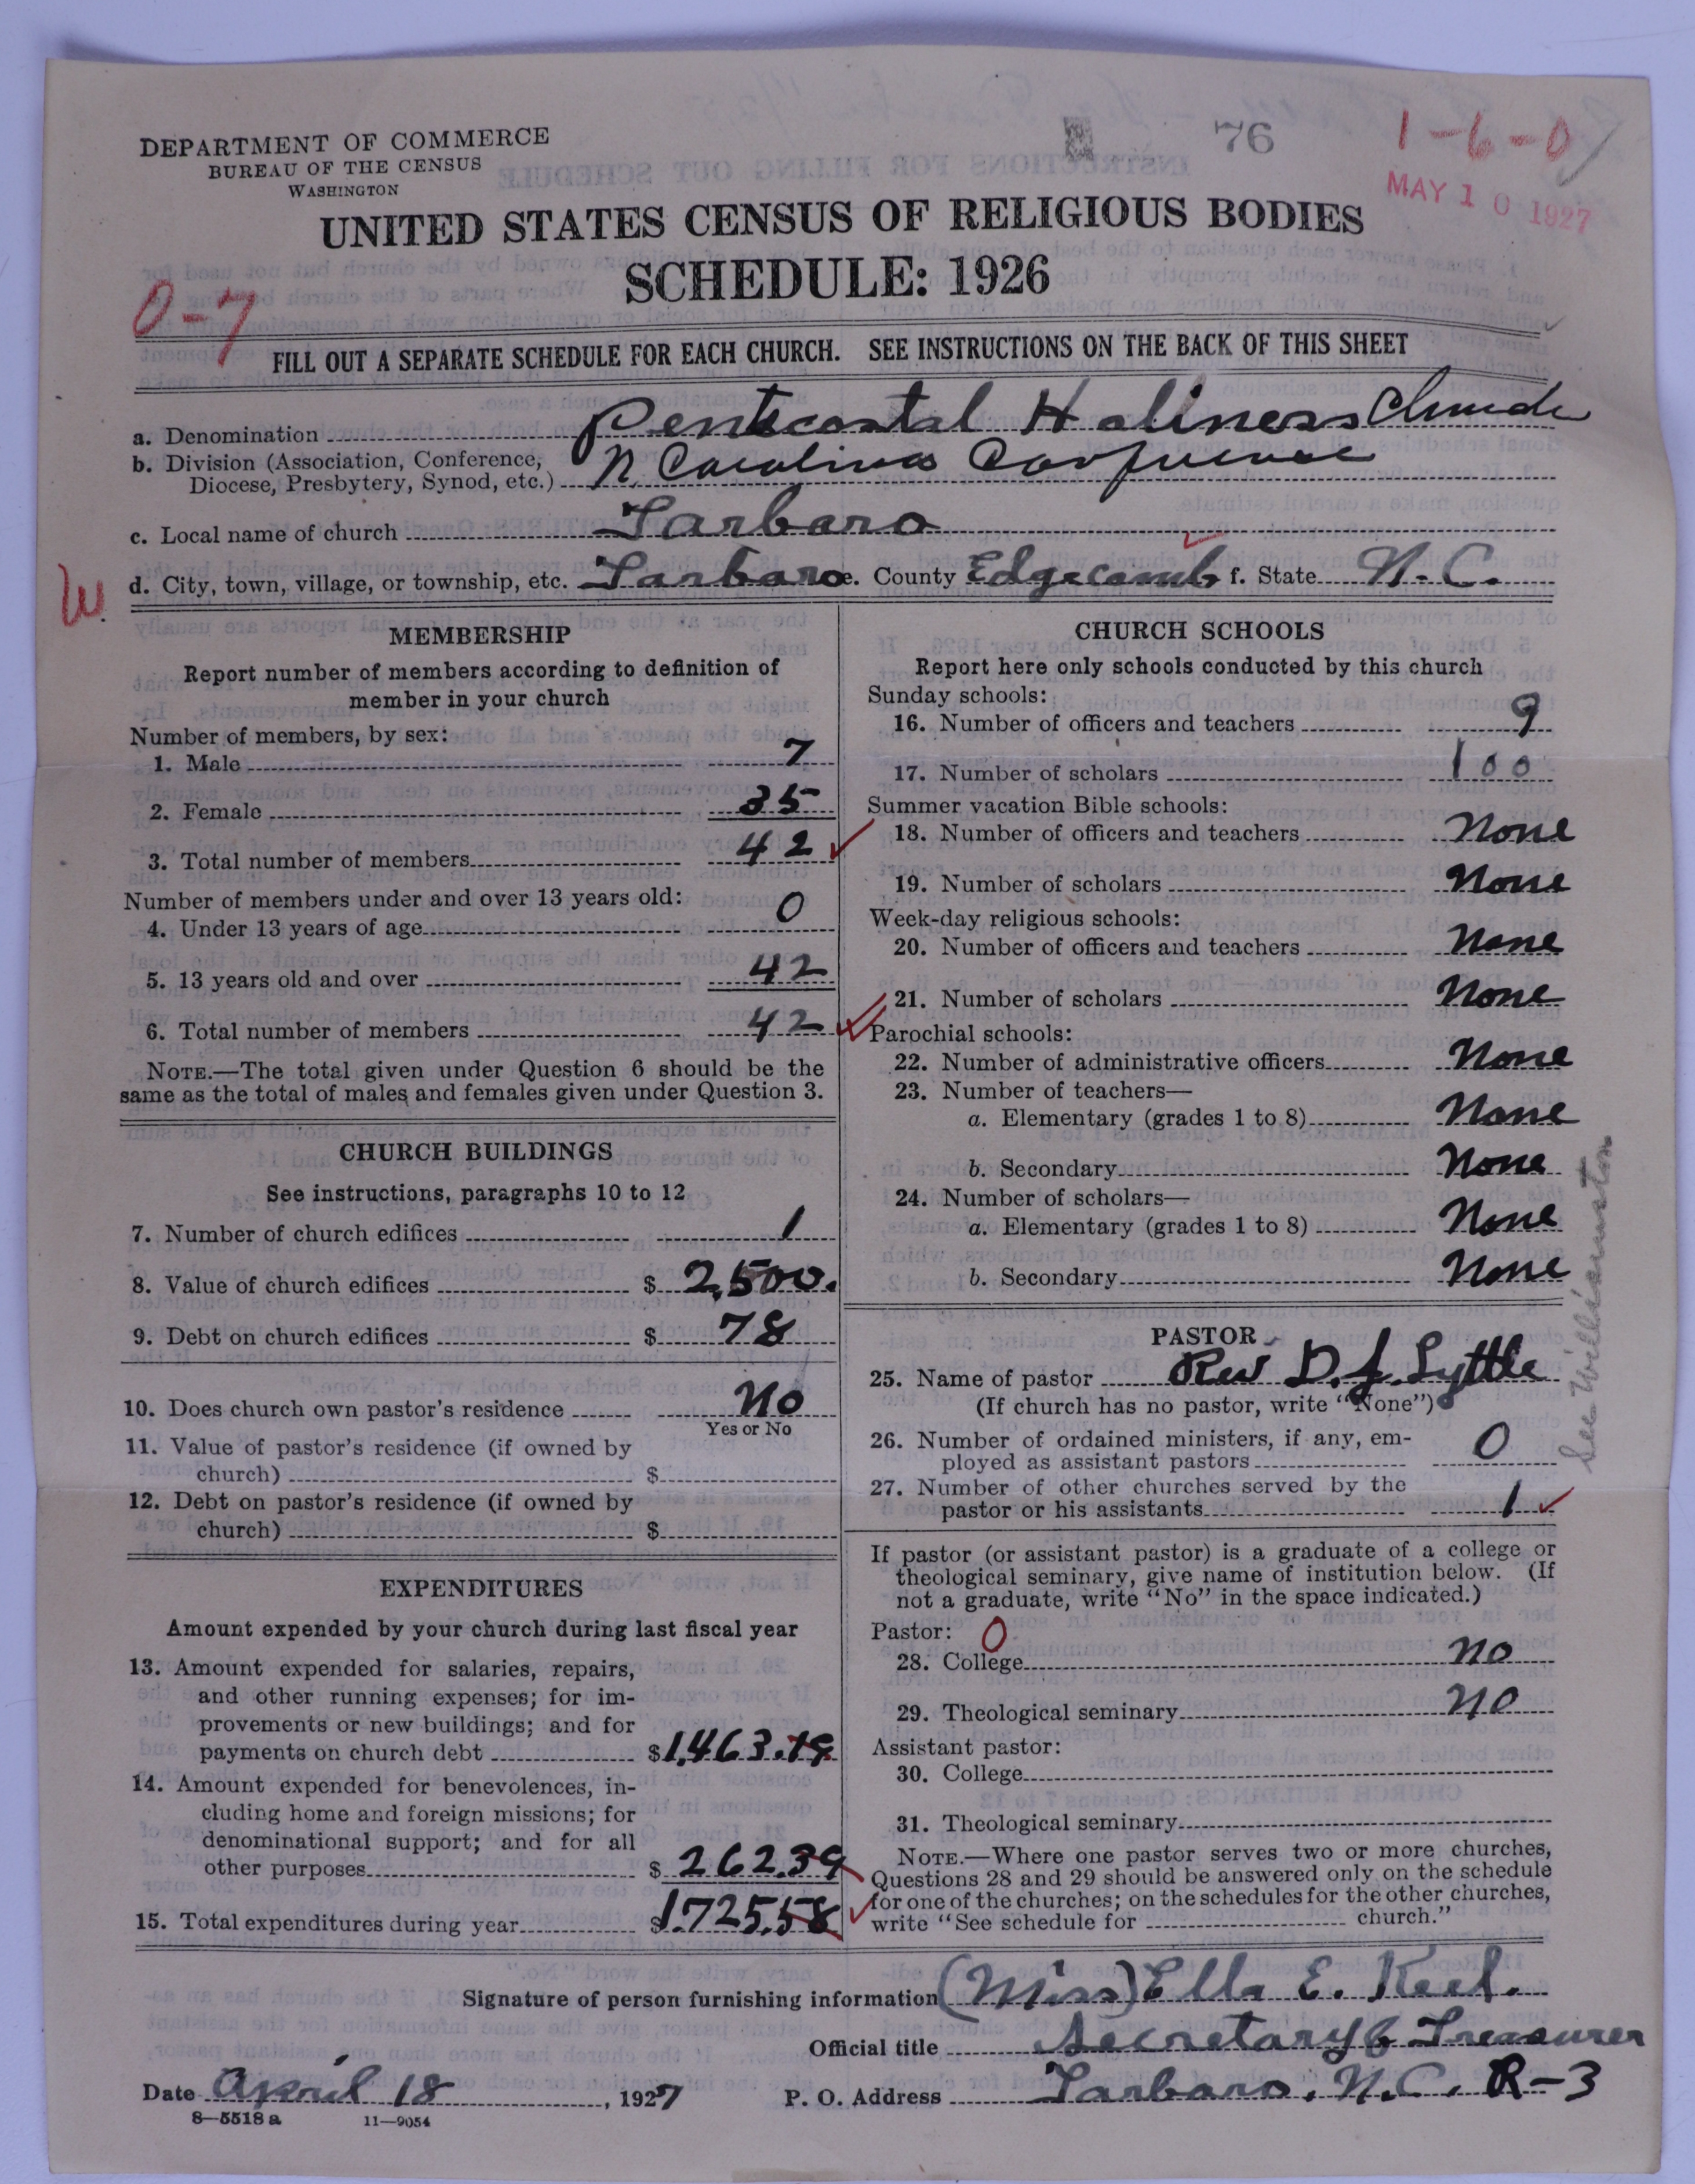 DEPARTMENT OF COMMERCE
BUREAU OF THE CENSUS
WASHINGTON
76
1-6-0
MAY 10 1927
UNITED STATES CENSUS OF RELIGIOUS BODIES
SCHEDULE: 1926
0-7
FILL OUT A SEPARATE SCHEDULE FOR EACH CHURCH. SEE INSTRUCTIONS ON THE BACK OF THIS SHEET
a. Denomination Pentecostal Holiness Church
b. Division (Association, Conference, Diocese, Presbytery, Synod, etc.) N Carolina Conference
c. Local name of church Tarboro
W.
d. City, town, village, or township, etc. Tarboro e. County Edgecomb f. State N.C.
MEMBERSHIP
Report number of members according to definition of
member in your church
Number of members, by sex:
1. Male 7
2. Female 35
3. Total number of members 42
Number of members under and over 13 years old:
4. Under 13 years of age 0
5. 13 years old and over 42
6. Total number of members 42
NOTE.—The total given under Question 6 should be the
same as the total of males and females given under Question 3.
CHURCH BUILDINGS
See instructions, paragraphs 10 to 12
7. Number of church edifices 1
8. Value of church edifices $ 2,500.
9. Debt on church edifices $ 78
10. Does church own pastor's residence No
Yes or No
11. Value of pastor's residence (if owned by
church) $
12. Debt on pastor's residence (if owned by
church) $
EXPENDITURES
Amount expended by your church during last fiscal year
13. Amount expended for salaries, repairs,
and other running expenses; for im-
provements or new buildings; and for
payments on church debt $1,463.19
14. Amount expended for benevolences, in-
cluding home and foreign missions; for
denominational support; and for all
other purposes $ 262.39
15. Total expenditures during year $1,725.58
CHURCH SCHOOLS
Report here only schools conducted by this church
Sunday schools:
16. Number of officers and teachers 9
17. Number of scholars 100
Summer vacation Bible schools:
18. Number of officers and teachers None
19. Number of scholars None
Week-day religious schools:
20. Number of officers and teachers None
21. Number of scholars None
Parochial schools:
22. Number of administrative officers None
23. Number of teachers—
a. Elementary (grades 1 to 8) None
b. Secondary None
24. Number of scholars—
a. Elementary (grades 1 to 8) None
b. Secondary None
See Williamston
PASTOR
25. Name of pastor Rev D. J. Lyttle
(If church has no pastor, write "None")
26. Number of ordained ministers, if any, em-
ployed as assistant pastors 0
27. Number of other churches served by the
pastor or his assistants 1
If pastor (or assistant pastor) is a graduate of a college or
theological seminary, give name of institution below. (If
not a graduate, write "No" in the space indicated.)
Pastor: 0
28. College no
29. Theological seminary no
Assistant pastor:
30. College
31. Theological seminary
NOTE.—Where one pastor serves two or more churches,
Questions 28 and 29 should be answered only on the schedule
for one of the churches; on the schedules for the other churches,
write "See schedule for church."
Signature of person furnishing information (Miss) Ella E. Keel.
Official title Secretary & Treasurer
Date April 18, 1927 P. O. Address Tarboro, N.C. R-3
8—5518 a 11—9054